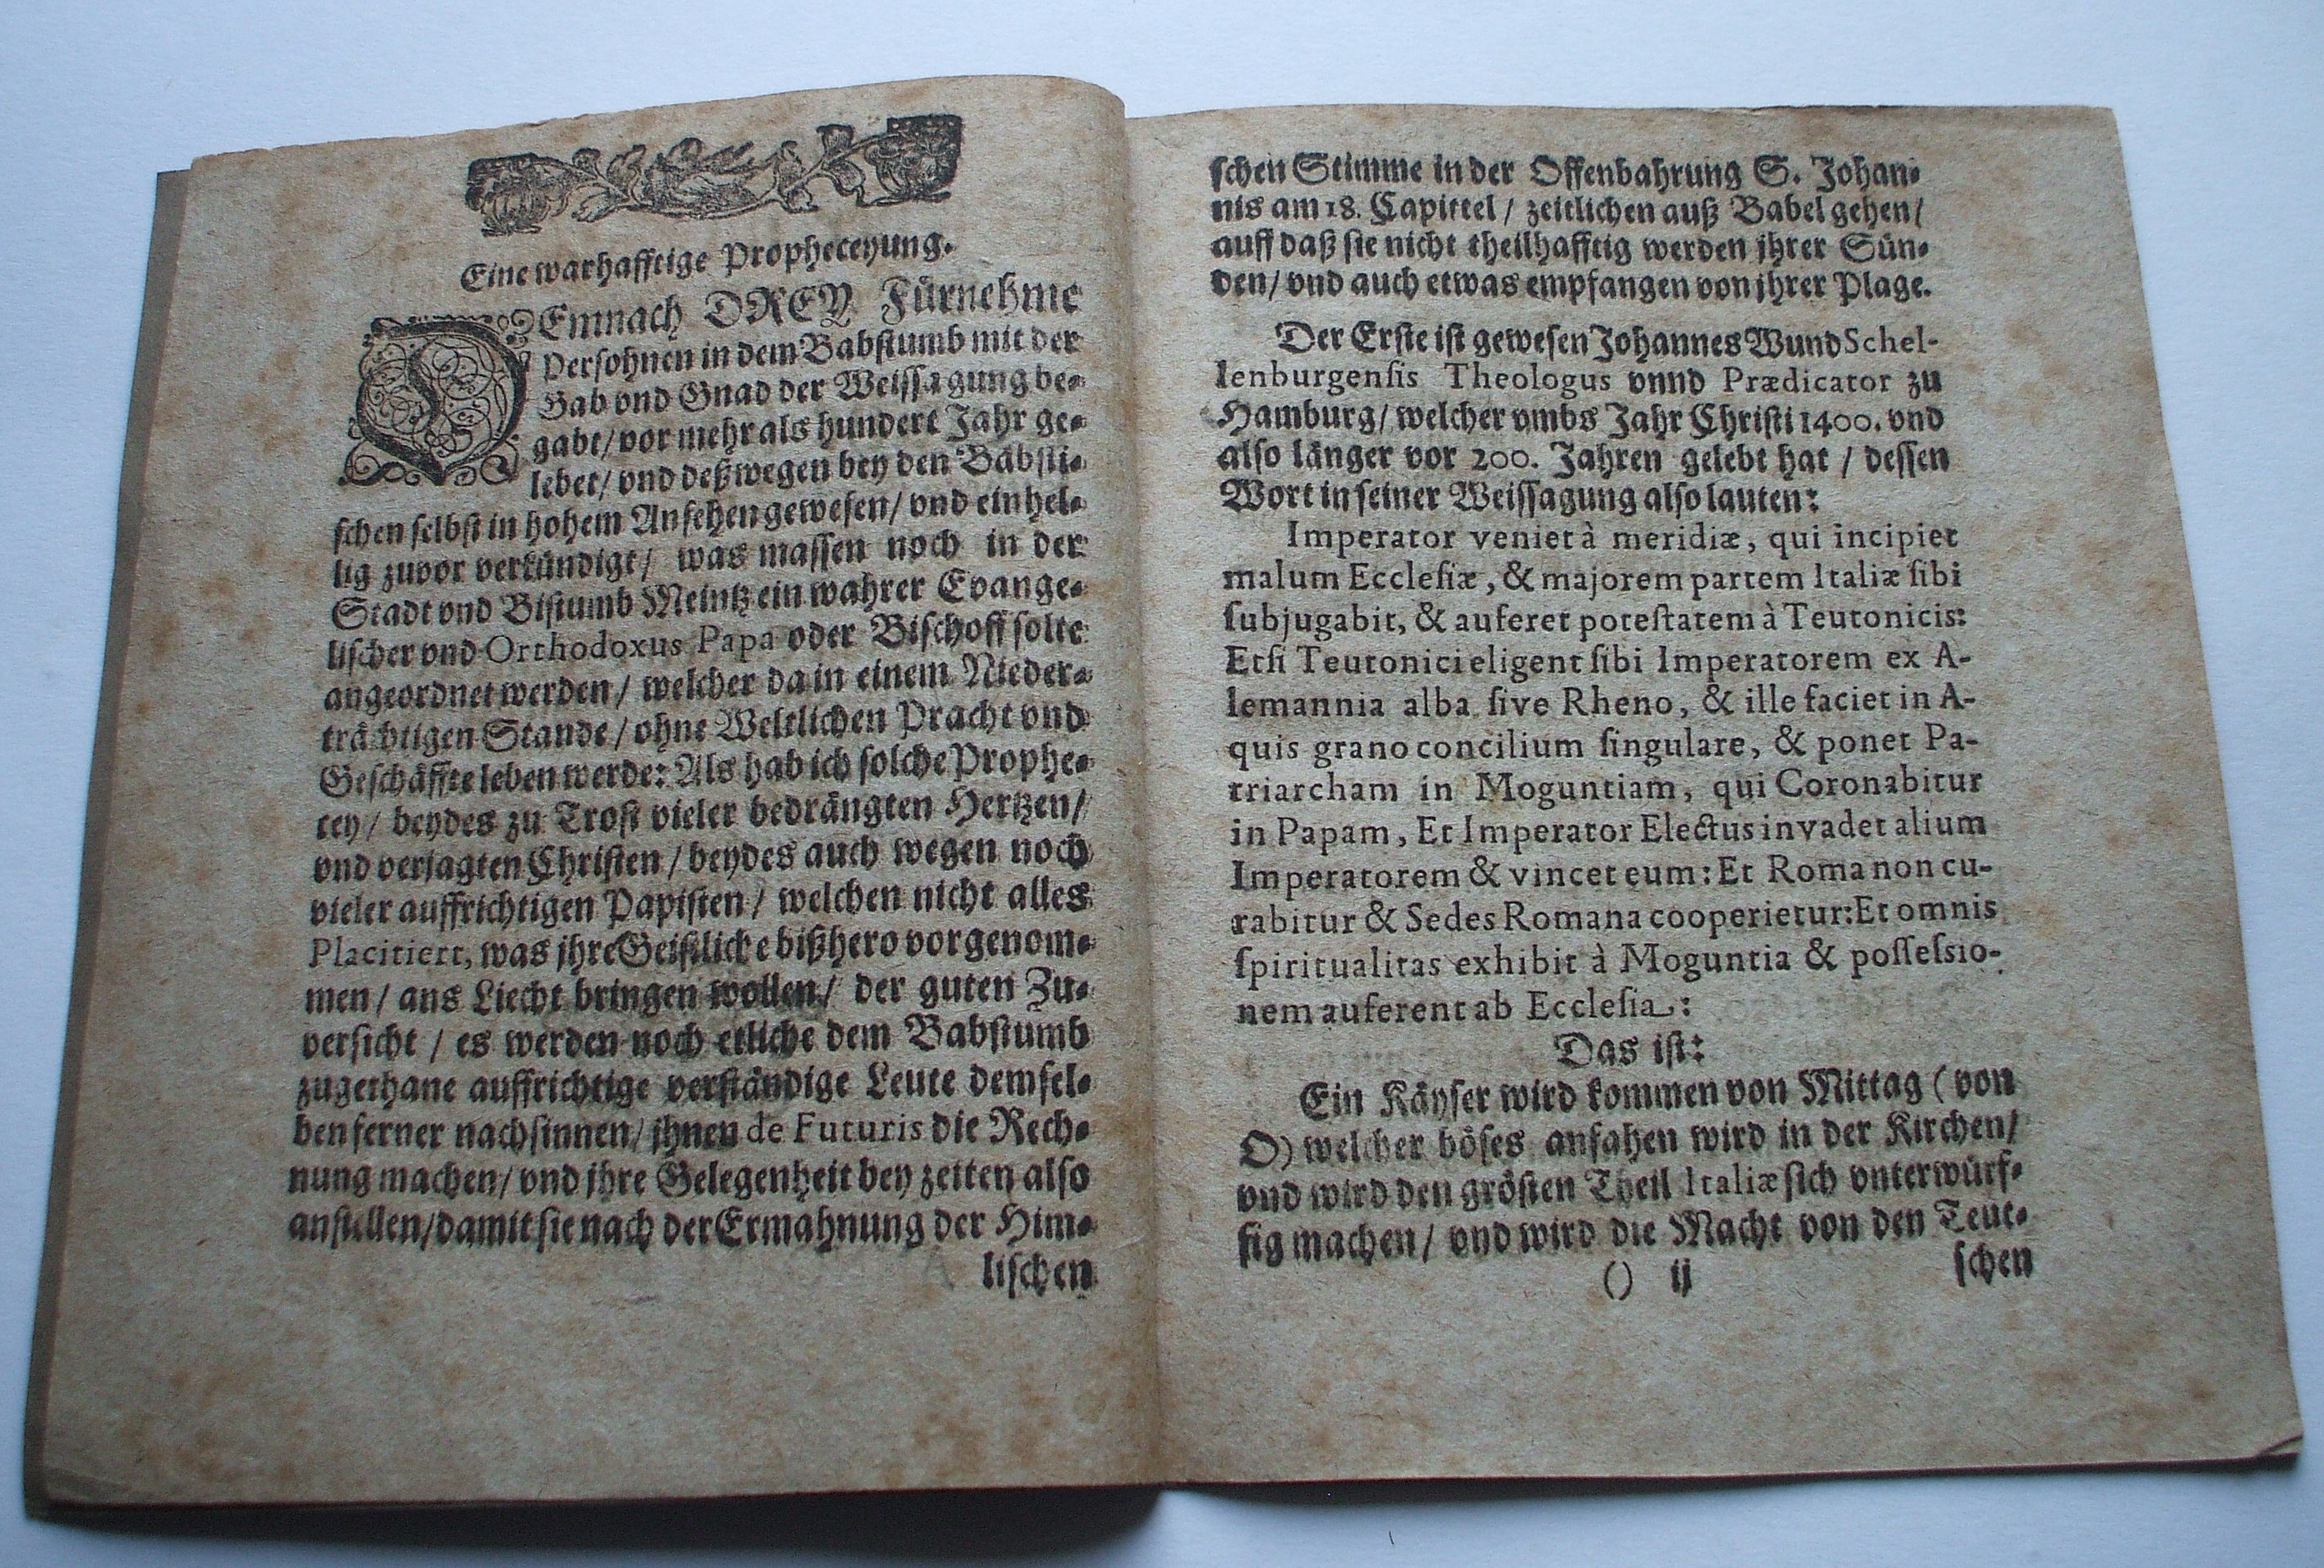 Eine warhafftige Propheceyung.
DEmnach DREY Fürnehme
Persohnen in dem Babstumb mit der
Gab vnd Gnad der Weissagung be-
gabt/ vor mehr als hundert Jahr ge-
lebet/ vnd deßwegen bey den Bäbsti-
schen selbst in hohem Ansehen gewesen/ vnd einhel-
lig zuvor verkündigt/ was massen noch in der
Stadt vnd Bistumb Meintz ein wahrer Evange-
lischer vnd Orthodoxus Papa oder Bischoff solte
angeordnet werden/ welcher da in einem Nieder-
trächtigen Stande/ ohne Weltlichen Pracht vnd
Geschäffte leben werde: Als hab ich solche Prophe-
cey/ beydes zu Trost vieler bedrängten Hertzen/
vnd verjagten Christen/ beydes auch wegen noch
vieler auffrichtigen Papisten/ welchen nicht alles
Placitiert, was jhre Geistliche bißhero vorgenom-
men/ ans Liecht bringen wollen/ der guten Zu-
versicht/ es werden noch etliche dem Babstumb
zugethane auffrichtige verständige Leute demsel-
ben ferner nachsinnen/ jhnen de Futuris die Rech-
nung machen/ vnd jhre Gelegenheit bey zeiten also
anstellen/ damit sie nach der Ermahnung der Him-
lischen
schen Stimme in der Offenbahrung S. Johan-
nis am 18. Capittel/ zeitlichen auß Babel gehen/
auff daß sie nicht theilhafftig werden jhrer Sün-
den/ vnd auch etwas empfangen von jhrer Plage.
Der Erste ist gewesen Johannes Wund Schel-
lenburgensis Theologus vnnd Prædicator zu
Hamburg/ welcher vmbs Jahr Christi 1400. vnd
also länger vor 200. Jahren gelebt hat/ dessen
Wort in seiner Weissagung also lauten:
Imperator veniet à meridiæ, qui incipiet
malum Ecclesiæ, & majorem partem Italiæ sibi
subjugabit, & auferet potestatem à Teutonicis:
Etsi Teutonici eligent sibi Imperatorem ex A-
lemannia alba sive Rheno, & ille faciet in A-
quis grano concilium singulare, & ponet Pa-
triarcham in Moguntiam, qui Coronabitur
in Papam, Et Imperator Electus invadet alium
Imperatorem & vincet eum: Et Roma non cu-
rabitur & Sedes Romana cooperietur: Et omnis
spiritualitas exhibit à Moguntia & possessio-
nem auferent ab Ecclesia:
Das ist:
Ein Käyser wird kommen von Mittag (von
O) welcher böses anfahen wird in der Kirchen/
vnd wird den grösten Theil Italiæ sich vnterwürf-
fig machen/ vnd wird die Macht von den Teut-
() ij schen